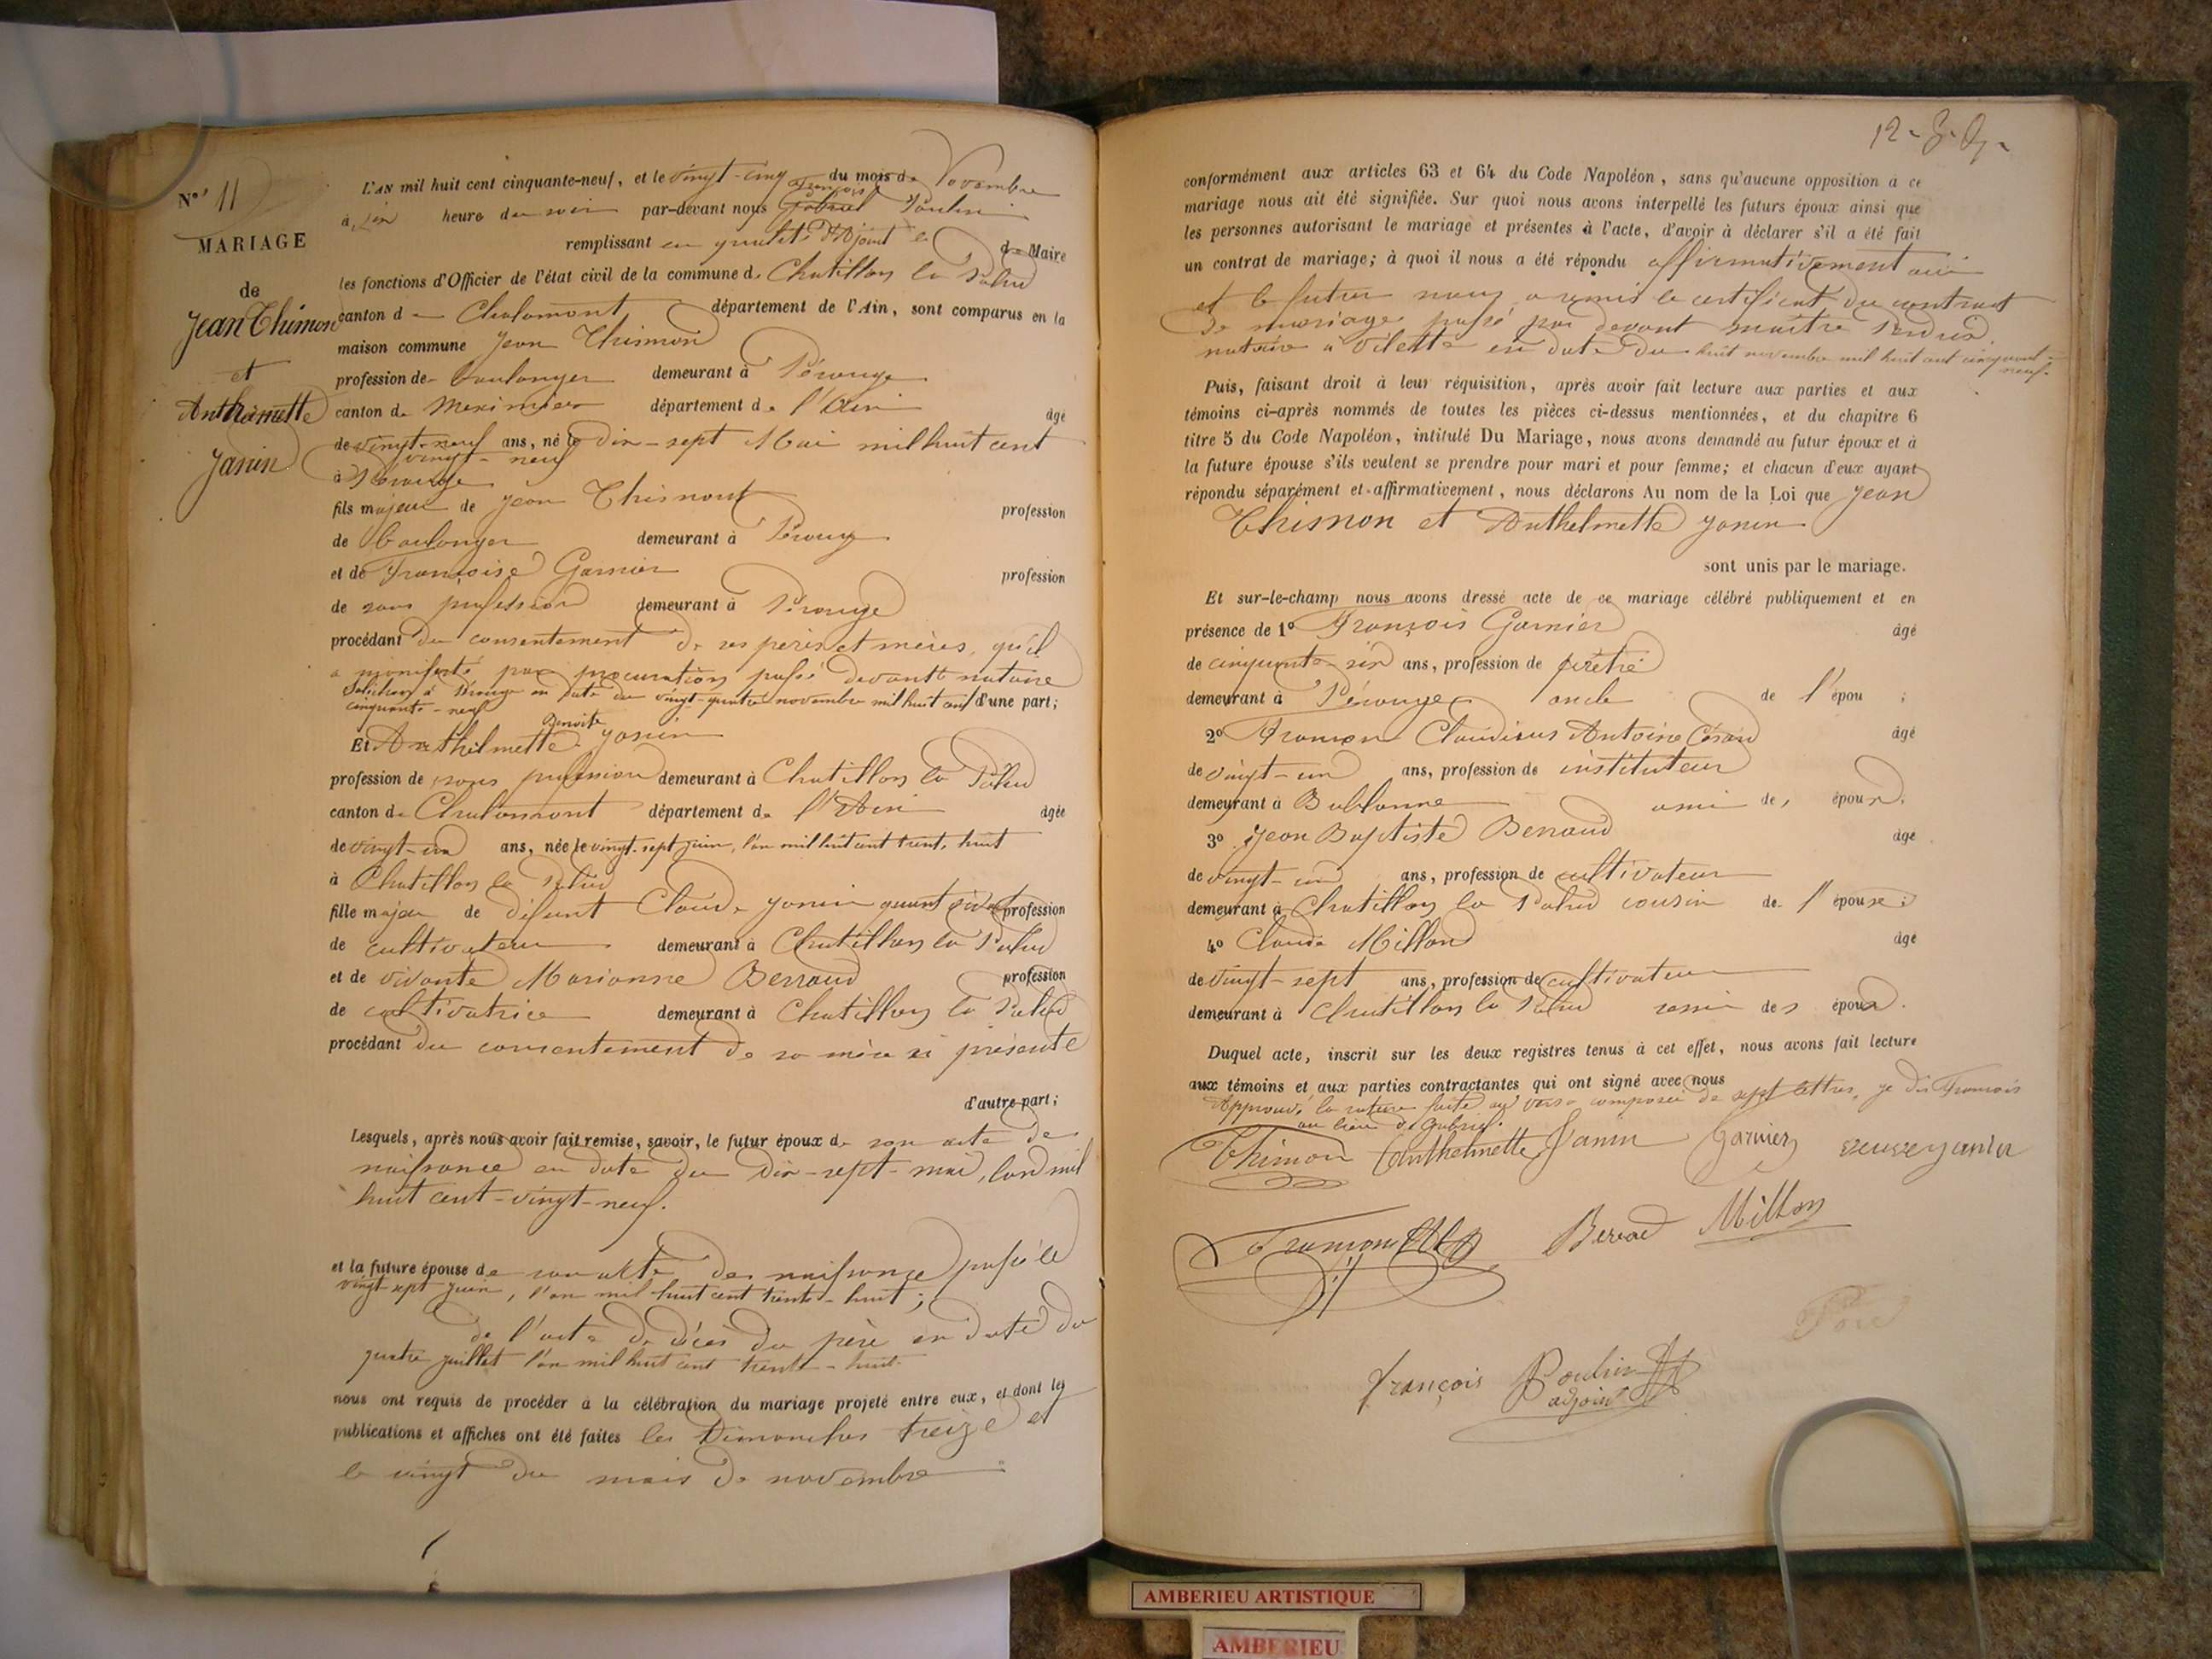 N° 11
MARIAGE
de
Jean Thimon
et
Anthelmette
Janin
L'AN mil huit cent cinquante-neuf, et le vingt-cinq du mois de Novembre
françois
à six heure du soir par-devant nous Gabriel Poulin
remplissant en qualité d'Adjoint les de Maire
les fonctions d'Officier de l'état civil de la commune d. Chatillon la Palud
canton d Chalamont département de l'Ain, sont comparus en la
maison commune Jean Thimon
profession de boulanger demeurant à Pérouge
canton de Meximieux département de l'Ain âgé
de vingt-neuf ans, né le dix-sept Mai mil huit cent
vingt-neuf
à Pérouge
fils majeur de Jean Thimont profession
de boulanger demeurant à Pérouge
et de Françoise Garnier profession
de sans profession demeurant à Pérouge
procédant du consentement de ses pères et mères, qu'il
a manifesté par procuration passé devant notaire
à Pérouge en date du vingt-quatre novembre mil huit cent d'une part;
cinquante-neuf
Benoite
Et Anthelmette Janin
profession de sans profession demeurant à Chatillon la Palud
canton de Chalamont département de l'Ain âgée
de vingt-un ans, née le vingt-sept juin, l'an mil huit cent trent, huit
à Chatillon la Palud
fille majeur de défunt Claude Janin quant vivait profession
de cultivateur demeurant à Chatillon la Palud
et de vivante Marianne Berraud profession
de cultivatrice demeurant à Chatillon la Palud
procédant du consentement de sa mère ici présente
d'autre part;
Lesquels, après nous avoir fait remise, savoir, le futur époux de son acte de
naissance en date du dix-sept-mai, l'an mil
huit cent-vingt-neuf.
et la future épouse de son acte de naissance passé le
vingt-sept juin, l'an mil huit cent trente-huit;
de l'acte de décès du père en date du
quatre juillet l'an mil huit cent trente-huit.
nous ont requis de procéder à la célébration du mariage projeté entre eux, et dont les
publications et affiches ont été faites les Dimanches treize et
le vingt du mois de novembre
conformément aux articles 63 et 64 du Code Napoléon, sans qu'aucune opposition à ce
mariage nous ait été signifiée. Sur quoi nous avons interpellé les futurs époux ainsi que
les personnes autorisant le mariage et présentes à l'acte, d'avoir à déclarer s'il a été fait
un contrat de mariage; à quoi il nous a été répondu affirmativement oui
et le futur nous a remis le certificat du contract
de mariage passé par devant maître
notaire à Vilette en date du huit novembre mil huit cent cinquante-
neuf.
Puis, faisant droit à leur réquisition, après avoir fait lecture aux parties et aux
témoins ci-après nommés de toutes les pièces ci-dessus mentionnées, et du chapitre 6
titre 5 du Code Napoléon, intitulé Du Mariage, nous avons demandé au futur époux et à
la future épouse s'ils veulent se prendre pour mari et pour femme; et chacun d'eux ayant
répondu séparément et affirmativement, nous déclarons Au nom de la Loi que Jean
Thimon et Anthelmette Janin
sont unis par le mariage.
Et sur-le-champ nous avons dressé acte de ce mariage célébré publiquement et en
présence de 1° François Garnier âgé
de cinquante-six ans, profession de prêtre
demeurant à Pérouges oncle de l'épou ;
2° Claudius Antoine César âgé
de vingt-un ans, profession de instituteur
demeurant à Bublanne ami des époux;
3° Jean Baptiste Berraud âgé
de vingt-un ans, profession de cultivateur
demeurant à Chatillon la Palud cousin de l'épouse;
4° Claude Millon âgé
de vingt-sept ans, profession de cultivateur
demeurant à Chatillon la Palud des époux.
Duquel acte, inscrit sur les deux registres tenus à cet effet, nous avons fait lecture
aux témoins et aux parties contractantes qui ont signé avec nous
Approuvé la rature faite au verso composée de sept lettres, je dis François
au lieu de Gabriel.
Thimon Anthelmette Janin Garnier veuve janin
Berraud Millon
françois Poulin
adjoint
AMBERIEU ARTISTIQUE
AMBERIEU